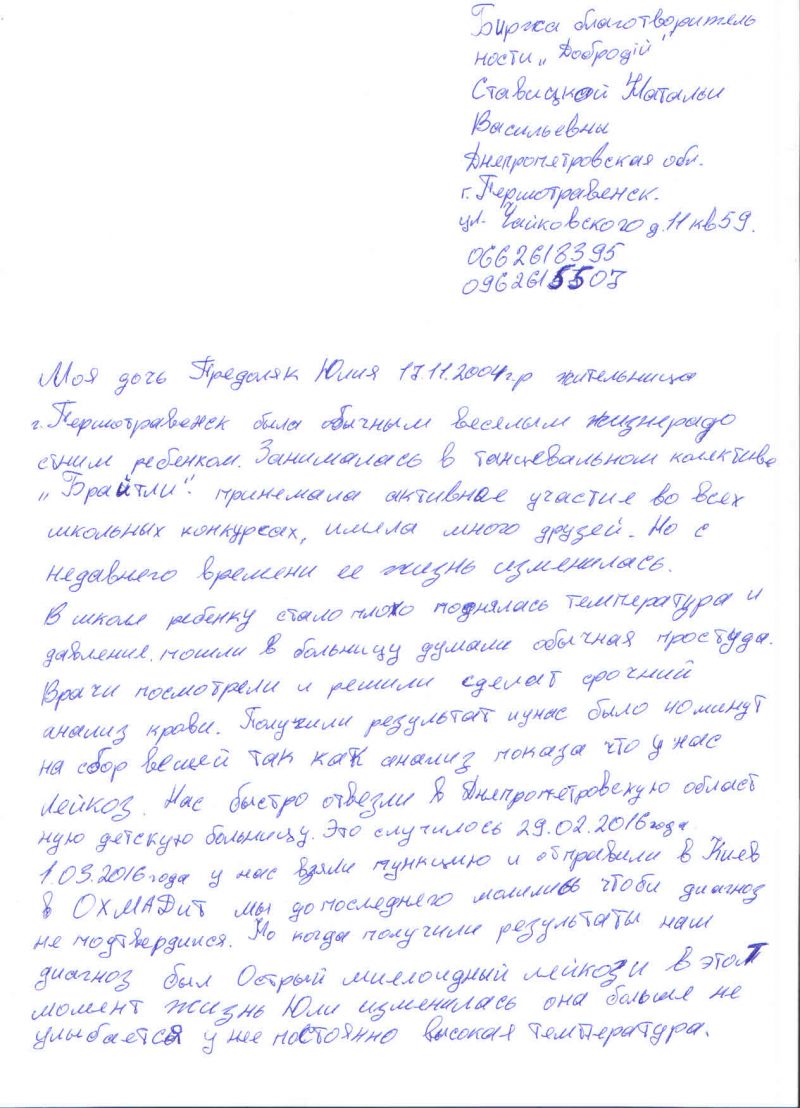 Биржа благотворитель
ности „Добродій"
Ставицкой Натальи
Васильевны
Днепропетровская обл.
г. Першотравенск.
ул. Чайковского д. 11 кв 59.
0662618395
0962615503
Моя дочь Предоляк Юлия 17.11.2004 г.р жительница
г. Першотравенск была обычным веселым жизнерадо
стним ребенком. Занималась в танцевальном колективе
„Брайтли". принемала активное участие во всех
школьных конкурсах, имела много друзей. Но с
недавнего времени ее жизнь изменилась.
В школе ребенку стало плохо поднялась температура и
давление. пошли в больницу думали обычная простуда.
Врачи посмотрели и решили сделат срочний
анализ крови. Получили результат и у нас было 40 минут
на сбор вещей так как анализ показа что у нас
лейкоз. Нас быстро отвезли в Днепропетровскую област
ную детскую больницу. Это случилось 29.02.2016 года.
1.03.2016 года у нас взяли пункцию и отправили в Киев
в ОХМАДит мы до последнего молились чтоби диагноз
не подтвердился. Но когда получили результаты наш
диагноз был Острый миелоидный лейкоз и в этот
момент жизнь Юли изменилась она больше не
улыбается у нее постоянно высокая температура.